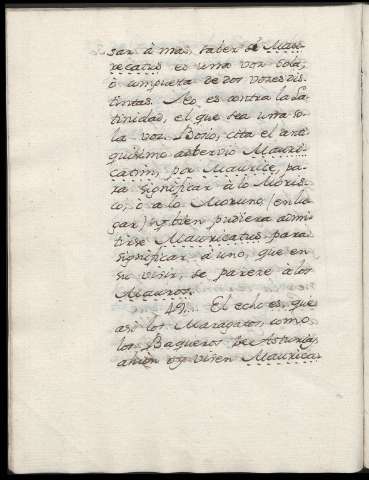 sar à mas, saber si Mau-
recatus es una voz sola,
ò compuesta de dos vozes dis-
tintas. No es contra la La-
tinidad, el que sea una so-
la voz. Bosio, cita el anti-
quisimo adverbio Mauri-
catim, por Maurice, pa-
ra significar à lo Moris-
co, ò a lo Moruno (en lu-
gar) y bien pudiera admi-
tirse Mauricatus, para
significar à uno, que en
su vivir, se parece à los
Mauros.
49. El echo es, que
asi los Maragatos, como
los Baqueros de Asturias,
ahun oy viven Maurica-